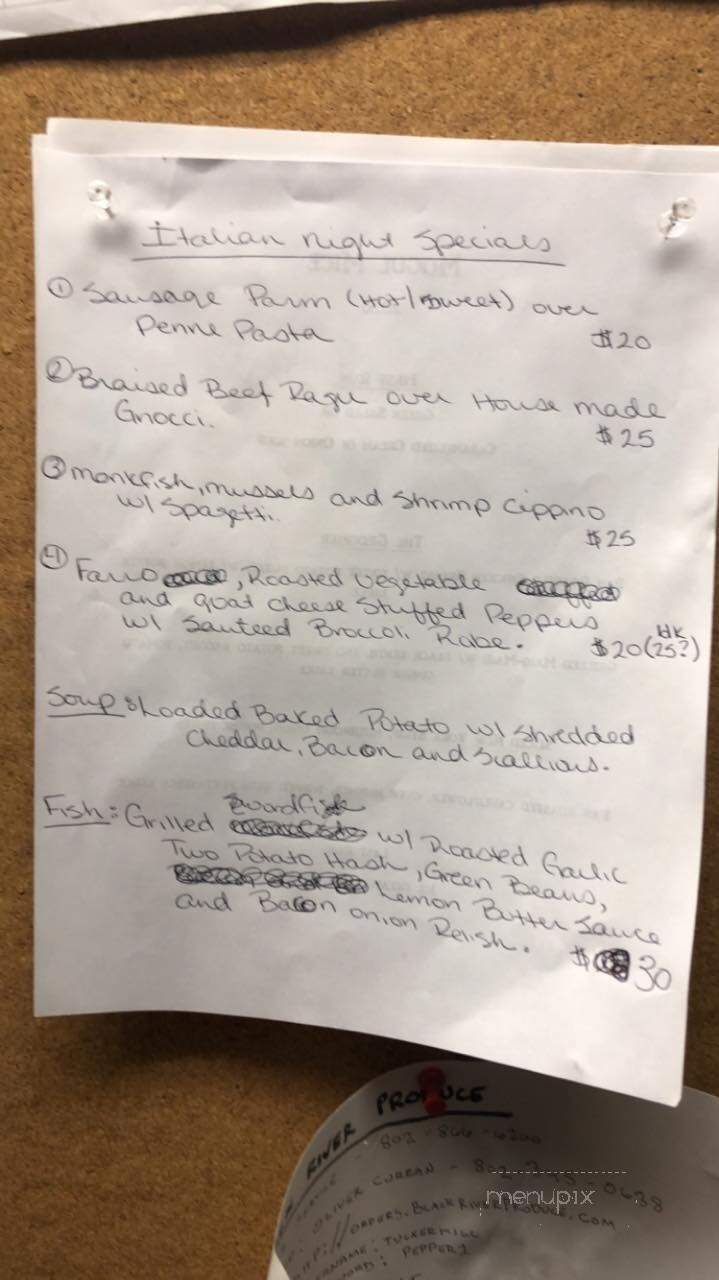 Italian night Specials
① Sausage Parm (Hot/Sweet) over
Penne Pasta $20
② Braised Beef Ragu over House made
Gnocci. $25
③ monkfish, mussels and Shrimp Cippino
w/ Spagetti. $25
④ Farro, Roasted Vegetable
and goat cheese Stuffed Peppers
w/ Sauteed Broccoli Rabe. $20 (25?)
Soup: Loaded Baked Potato w/ Shredded
Cheddar, Bacon and Scallions.
Fish: Grilled Swordfish w/ Roasted Garlic
Two Potato Hash, Green Beans,
Lemon Butter Sauce
and Bacon onion Relish. $30
RIVER PRODUCE
802-866-4200
OLIVER CURRAN - 802-245-0638
ORDERS.BLACKRIVERPRODUCE.COM
NAME: TUCKERHILL
PEPPER1
menupix